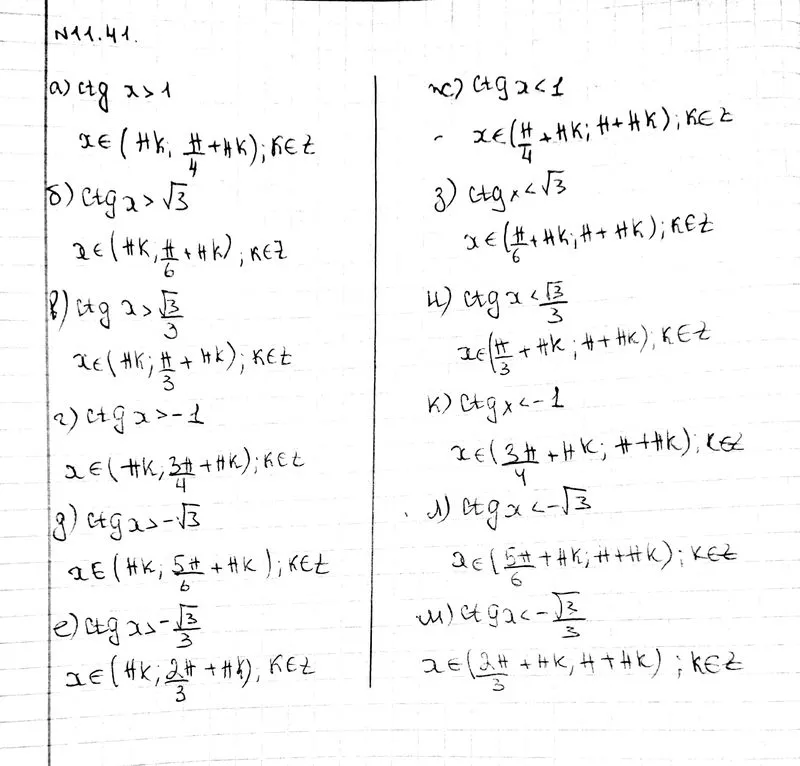 N11.41.
а) ctg x > 1
x ∈ (πk, π/4 + πk); k ∈ Z
б) ctg x > √3
x ∈ (πk, π/6 + πk), k ∈ Z
в) ctg x > √3/3
x ∈ (πk; π/3 + πk); k ∈ Z
г) ctg x > -1
x ∈ (πk; 3π/4 + πk); k ∈ Z
д) ctg x > -√3
x ∈ (πk; 5π/6 + πk); k ∈ Z
е) ctg x > -√3/3
x ∈ (πk; 2π/3 + πk), k ∈ Z
ж) ctg x < 1
x ∈ (π/4 + πk; π + πk); k ∈ Z
з) ctg x < √3
x ∈ (π/6 + πk; π + πk); k ∈ Z
и) ctg x < √3/3
x ∈ (π/3 + πk; π + πk); k ∈ Z
к) ctg x < -1
x ∈ (3π/4 + πk; π + πk); k ∈ Z
л) ctg x < -√3
x ∈ (5π/6 + πk; π + πk); k ∈ Z
м) ctg x < -√3/3
x ∈ (2π/3 + πk, π + πk); k ∈ Z